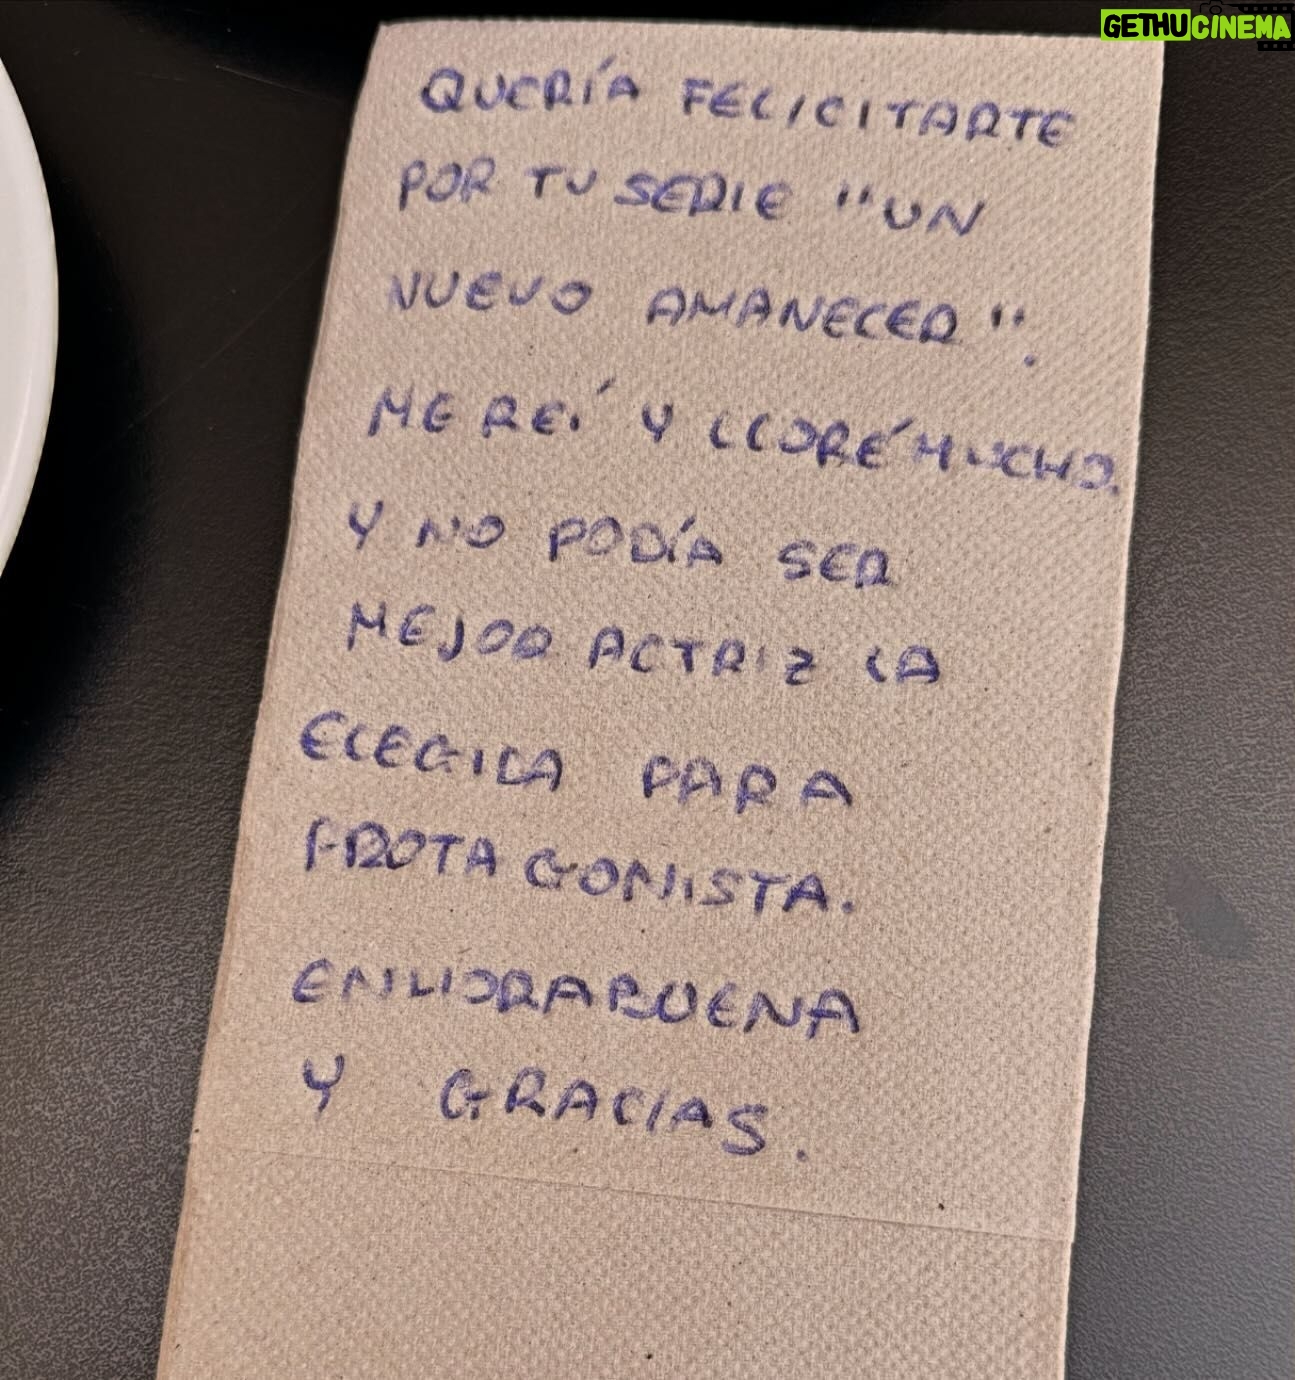 GETHUCINEMA
QUERÍA FELICITARTE
POR TU SERIE "UN
NUEVO AMANECER".
ME REÍ Y LLORÉ MUCHO.
Y NO PODÍA SER
MEJOR ACTRIZ LA
ELEGIDA PARA
PROTAGONISTA.
ENHORABUENA
Y GRACIAS.